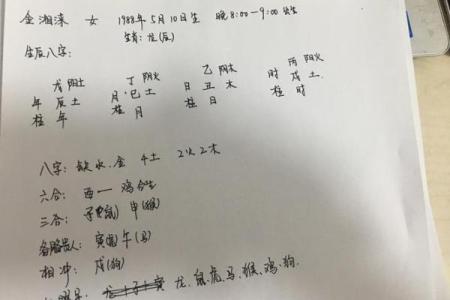 金湘溁 女 1988年5月10日生 晚8:00-9:00出生
生肖:龙(辰)
生辰八字:
戊阳土 丁阴火 乙阴木 丙阳火
年辰土 月巳土 日丑木 时戌土
柱年 柱月 柱日 柱时
八字:缺水、金 4土 2火 2木
六合:酉—鸡合生
三合:子(鼠) 申(猴)
贵人:寅(虎)午(马)
相冲:戌(狗)
龙、鼠、虎、马、猴、鸡、狗